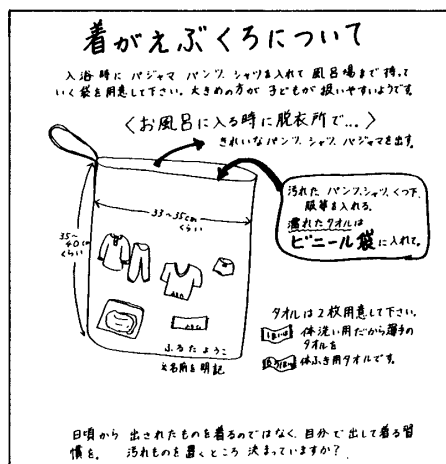 着がえぶくろについて
入浴時に パジャマ パンツ、シャツを入れて 風呂場まで 持って
いく袋を用意して下さい。大きめの方が 子どもが 扱いやすいようです。
〈お風呂に入る時に脱衣所で…〉
きれいなパンツ、シャツ、パジャマを出す。
汚れた パンツ、シャツ、くつ下、
服等を入れる。
濡れたタオルは
ビニール袋に入れて。
33〜35cm
くらい
35〜
40cm
くらい
ふるた ようこ
名前を明記
タオルは2枚用意して下さい。
体洗い用だから薄手の
タオルを
体ふき用タオルです。
日頃から 出されたものを着るのではなく、自分で出して着る習
慣を。 汚れものを置くところ 決まっていますか?